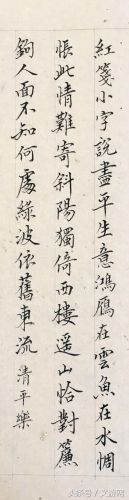 紅箋小字說盡平生意鴻鴈在雲魚在水惆
悵此情難寄斜陽獨倚西樓遥山恰對簾
鉤人面不知何處綠波依舊東流 清平樂
头条号 / 艾游网